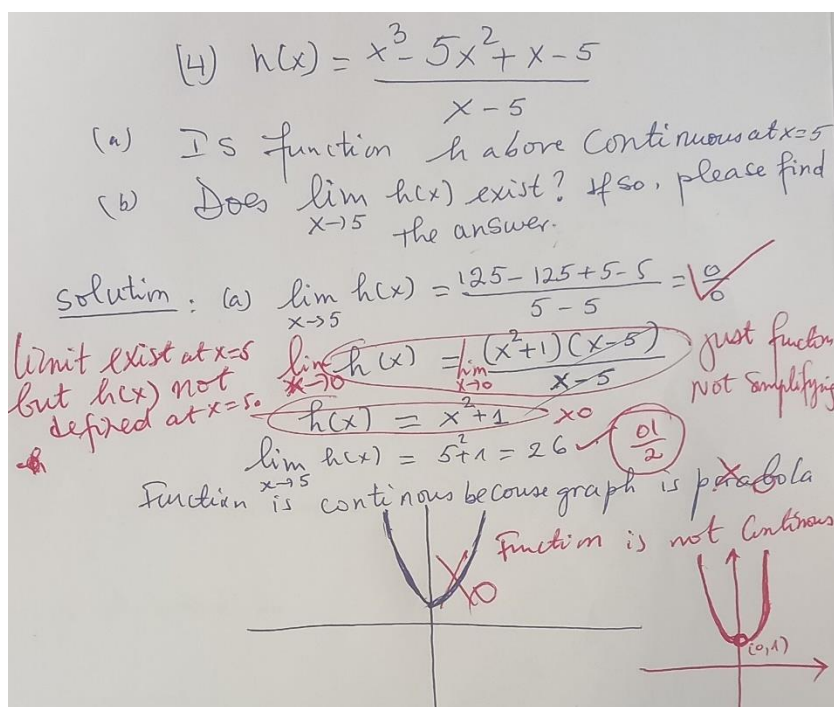 (4) h(x) = x³ - 5x² + x - 5 / x - 5
(a) Is function h above Continuous at x=5
(b) Does lim x→5 h(x) exist? If so, please find
the answer.
Solution : (a) lim x→5 h(x) = 125 - 125 + 5 - 5 / 5 - 5 = 0/0 ✓
Limit exist at x=5
but h(x) not
defined at x=5.
lim x→0 h(x) = lim x→0 (x²+1)(x-5) / x-5
just function
Not Simplifying
h(x) = x²+1 x0
lim x→5 h(x) = 5²+1 = 26 ✓ 01/2
Function is continous becouse graph is parabola
x0
Function is not Continous
(0,1)